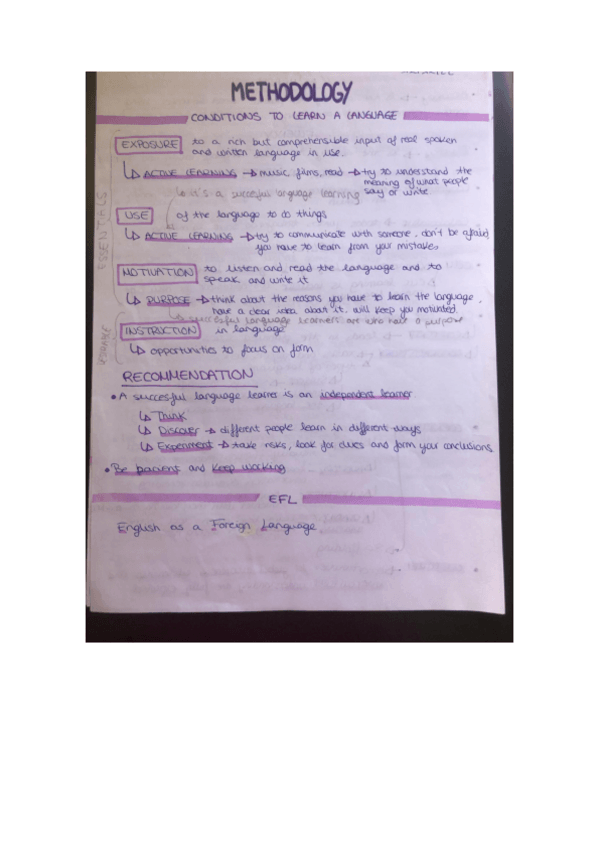 METHODOLOGY
CONDITIONS TO LEARN A LANGUAGE
EXPOSURE to a rich but comprehensible input of real spoken
and written language in use.
↳ ACTIVE LEARNING → music, films, read → try to understand the
meaning of what people
say or write.
↳ it's a succesful language learning
ESSENTIALS
USE of the language to do things
↳ ACTIVE LEARNING → try to communicate with someone, don't be afraid,
you have to learn from your mistakes.
MOTIVATION to listen and read the language and to
speak and write it
↳ PURPOSE → think about the reasons you have to learn the language,
have a clear idea about it, will keep you motivated.
↳ successful language learners are who have a purpose
INSTRUCTION in language
↳ opportunities to focus on form
RECOMMENDATION
• A succesful language learner is an independent learner.
↳ Think
↳ Discover → different people learn in different ways
↳ Experiment → take risks, look for clues and form your conclusions.
• Be pacient and keep working
EFL
English as a Foreign Language.